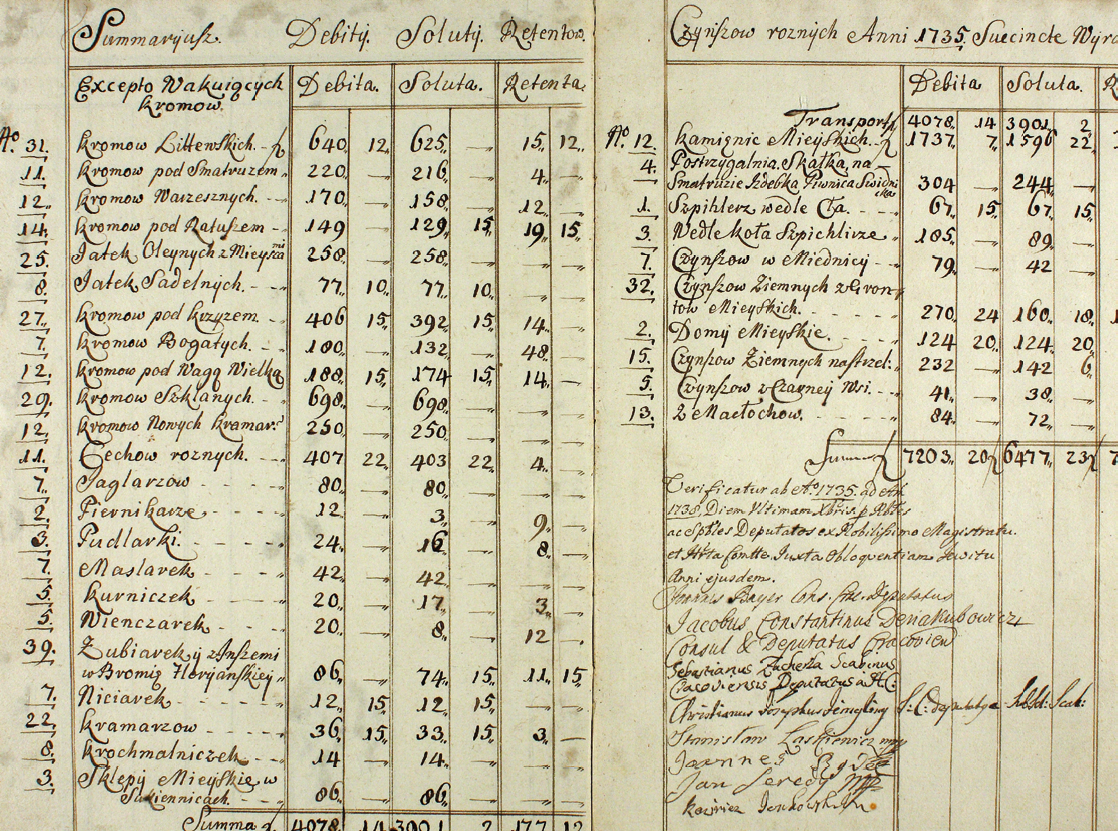 Summaryusz. Debity. Soluty. Retentow.
Excepto Wakuiących kromow. Debita. Soluta. Retenta
Aº. 31. kromow Littewskich. 640 12 625 — 15 12
11. kromow pod Smatruzem 220 — 216 — 4 —
12. kromow Warzesznych. 170 — 158 — 12 —
14. kromow pod Ratuszem 149 — 129 15 19 15
25. Jatek Oleynych z Mieyskimi 258 — 258 — — —
8. Jatek Sadelnych. 77 10 77 10 — —
27. kromow pod krzyzem. 406 15 392 15 14 —
7. kromow Bogatych. 180 — 132 — 48 —
12. kromow pod Wagą Wielką 188 15 174 15 14 —
29. kromow Szklanych. 698 — 698 — — —
12. kromow Nowych kramar: 250 — 250 — — —
11. Cechow roznych. 407 22 403 22 4 —
7. Jaglarzow 80 — 80 — — —
2. Piernikarze 12 — 3 — 9 —
3. Pudlarki. 24 — 16 — 8 —
7. Maslarek 42 — 42 — — —
5. kurniczek 20 — 17 — 3 —
5. Wienczarek 20 — 8 — 12 —
39. Zubiarek y z Inszemi
w Bromię Floryanskiey 86 — 74 15 11 15
7. Niciarek 12 15 12 15 — —
22. kramarzow 36 15 33 15 3 —
8. krochmalniczek 14 — 14 — — —
3. Sklepy Mieyskie w
Sukiennicach. 86 — 86 — — —
Summa 4078 14 3901 2 177 12
Czynszow roznych Anni 1735. Succincte
Debita Soluta.
Transport 4078 14 3901 2
Aº. 12. kamienic Mieyskich. 1737 7 1596 22
4. Postrzygalnia. Skatka, na
Smatruzie Izdebka Piwnica Swidnicka 304 — 244 —
1. Szpihlerz wedle Cła. 67 15 67 15
3. Wedle koła Szpichlirze 185 — 89 —
7. Czynszow w Miednicy 79 — 42 —
32. Czynszow Ziemnych z Gron-
tow Mieyskich. 270 24 160 18
2. Domy Mieyskie. 124 20 124 20
15. Czynszow Ziemnych na strzel: 232 — 142 6
5. Czynszow z Czarney Wsi. 41 — 38 —
13. z Małochow. 84 — 72 —
Summa 7203 20 6477 23
Verificatur ab Aº. 1735. ad
1738. Diem Ultimam Xbris p
ac Deputatos ex Nobilissimo Magistratu
et Juxta
Anni ejusdem.
Bayer Cons. Deputatus
Jacobus Constantinus Deriakubowicz
Consul & Deputatus Cracovien
Sebastianus Zucherla Scabinus
Cracoviensis Deputatus
Christianus
Stanislaw Laskiewicz
Joannes
Jan